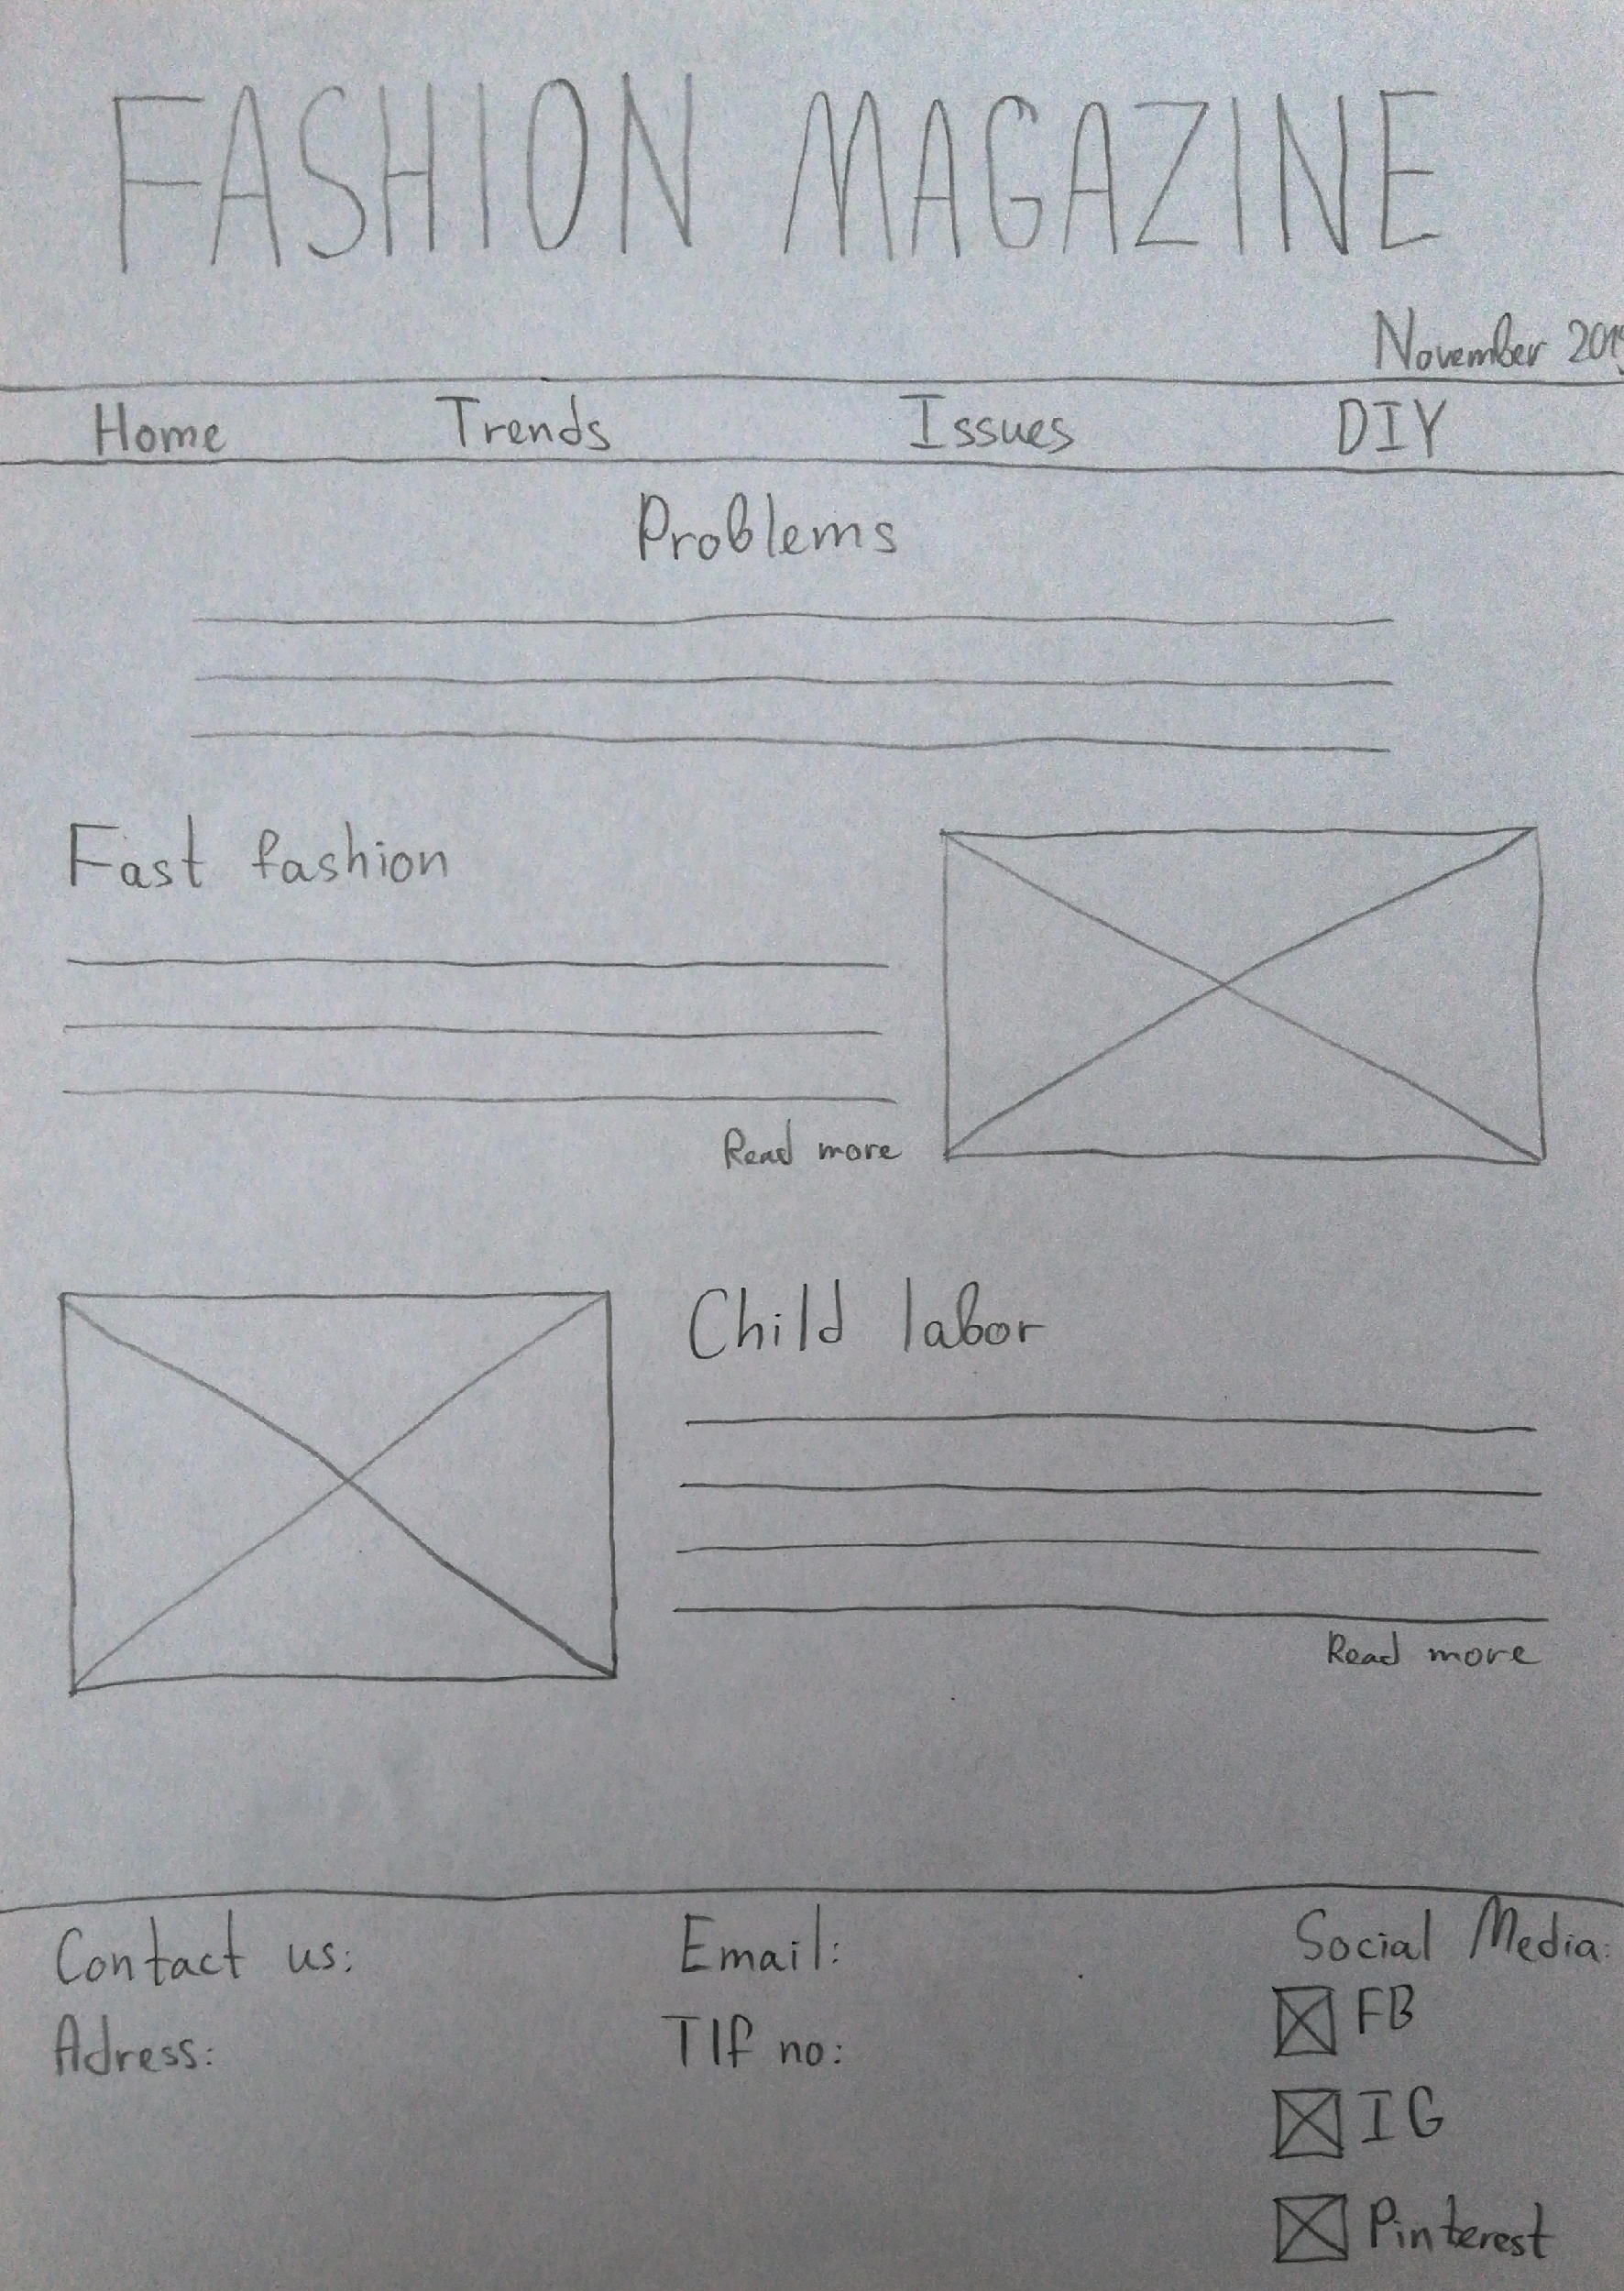 FASHION MAGAZINE
November 2019
Home Trends Issues DIY
Problems
Fast fashion
Read more
Child labor
Read more
Contact us: Email: Social Media:
Adress: Tlf no: FB
IG
Pinterest